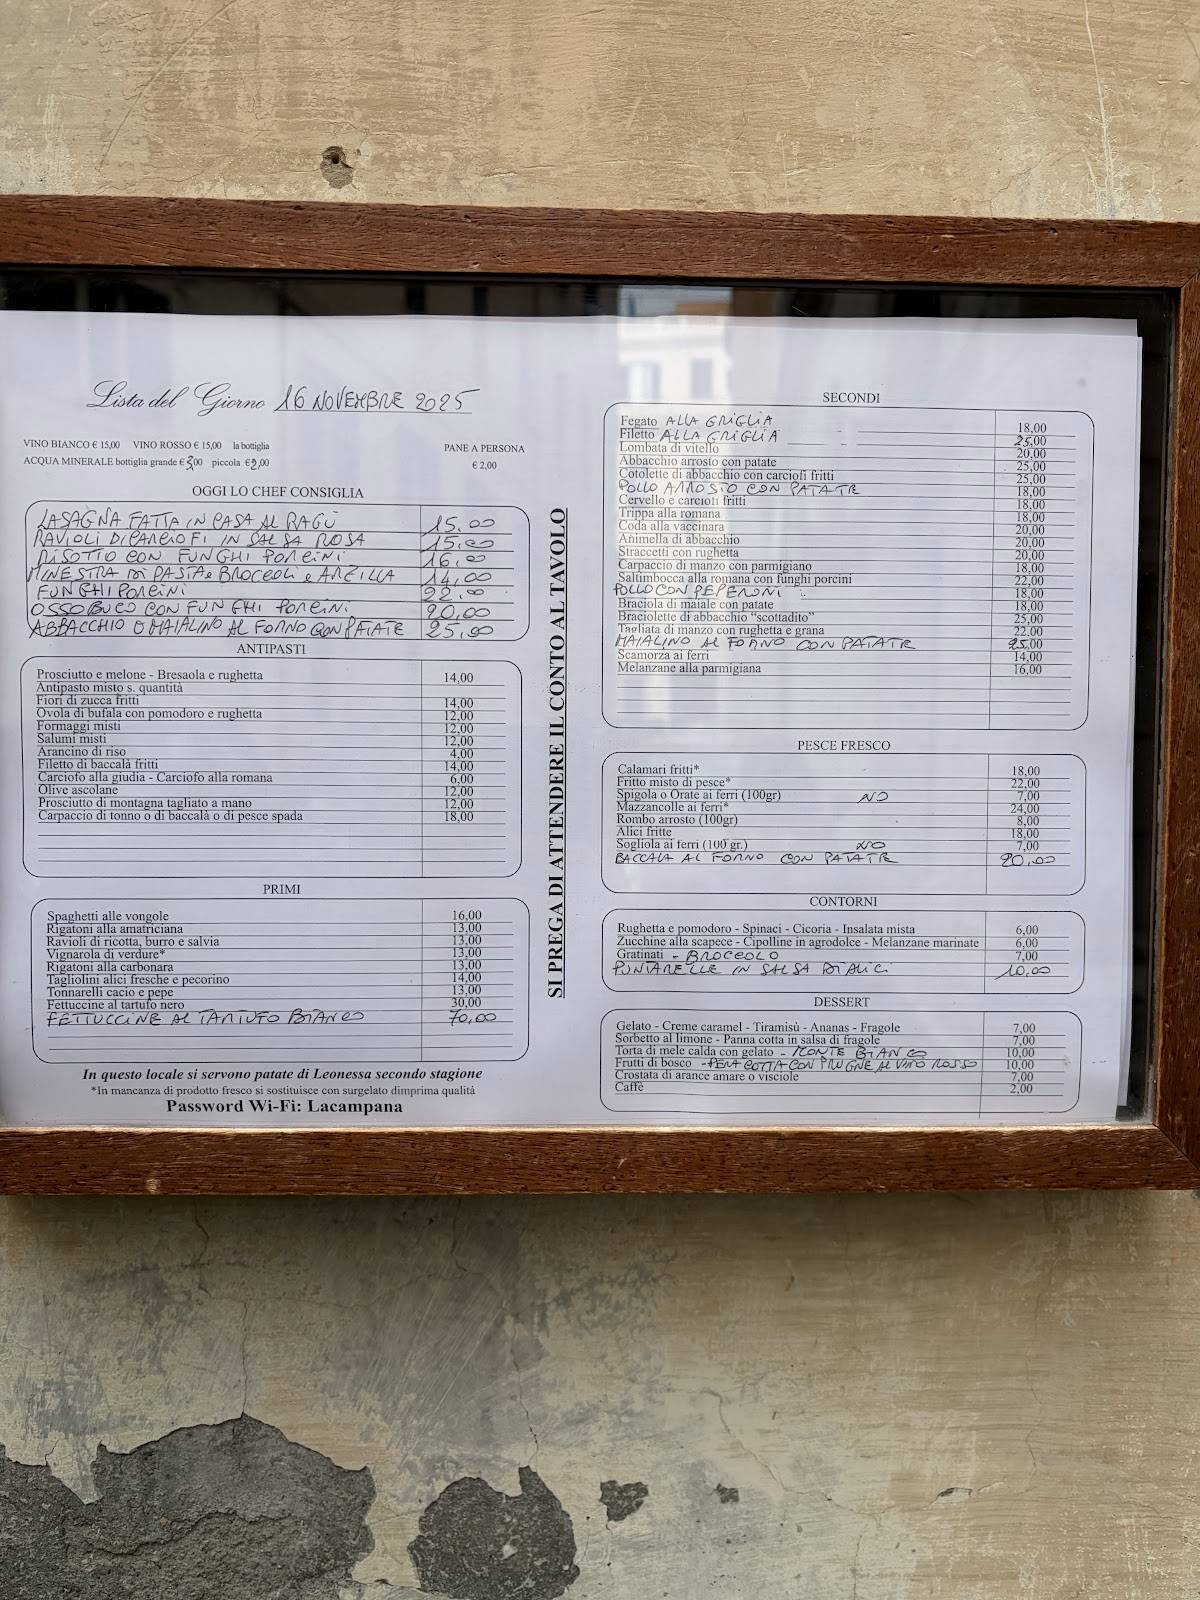 Lista del Giorno 16 NOVEMBRE 2025
VINO BIANCO € 15,00 VINO ROSSO € 15,00 la bottiglia
ACQUA MINERALE bottiglia grande € 3,00 piccola € 2,00
PANE A PERSONA
€ 2,00
OGGI LO CHEF CONSIGLIA
LASAGNA FATTA IN CASA AL RAGÙ 15.00
RAVIOLI DI CARCIOFI IN SALSA ROSA 15,00
RISOTTO CON FUNGHI PORCINI 16,00
MINESTRA DI PASTA e BROCCOLI e ARZILLA 14,00
FUNGHI PORCINI 22.00
OSSOBUCO CON FUNGHI PORCINI 20,00
ABBACCHIO O MAIALINO AL FORNO CON PATATE 25,00
ANTIPASTI
Prosciutto e melone - Bresaola e rughetta 14,00
Antipasto misto s. quantità
Fiori di zucca fritti 14,00
Ovola di bufala con pomodoro e rughetta 12,00
Formaggi misti 12,00
Salumi misti 12,00
Arancino di riso 4,00
Filetto di baccalà fritti 14,00
Carciofo alla giudia - Carciofo alla romana 6,00
Olive ascolane 12,00
Prosciutto di montagna tagliato a mano 12,00
Carpaccio di tonno o di baccalà o di pesce spada 18,00
PRIMI
Spaghetti alle vongole 16,00
Rigatoni alla amatriciana 13,00
Ravioli di ricotta, burro e salvia 13,00
Vignarola di verdure* 13,00
Rigatoni alla carbonara 13,00
Tagliolini alici fresche e pecorino 14,00
Tonnarelli cacio e pepe 13,00
Fettuccine al tartufo nero 30,00
FETTUCCINE AL TARTUFO BIANCO 70,00
In questo locale si servono patate di Leonessa secondo stagione
*In mancanza di prodotto fresco si sostituisce con surgelato dimprima qualità
Password Wi-Fi: Lacampana
SI PREGA DI ATTENDERE IL CONTO AL TAVOLO
SECONDI
Fegato ALLA GRIGLIA 18,00
Filetto ALLA GRIGLIA 25,00
Lombata di vitello 20,00
Abbacchio arrosto con patate 25,00
Cotolette di abbacchio con carciofi fritti 25,00
POLLO ARROSTO CON PATATE 18,00
Cervello e carciofi fritti 18,00
Trippa alla romana 18,00
Coda alla vaccinara 20,00
Animella di abbacchio 20,00
Straccetti con rughetta 20,00
Carpaccio di manzo con parmigiano 18,00
Saltimbocca alla romana con funghi porcini 22,00
POLLO CON PEPERONI 18,00
Braciola di maiale con patate 18,00
Braciolette di abbacchio “scottadito” 25,00
Tagliata di manzo con rughetta e grana 22,00
MAIALINO AL FORNO CON PATATE 25,00
Scamorza ai ferri 14,00
Melanzane alla parmigiana 16,00
PESCE FRESCO
Calamari fritti* 18,00
Fritto misto di pesce* 22,00
Spigola o Orate ai ferri (100gr) NO 7,00
Mazzancolle ai ferri* 24,00
Rombo arrosto (100gr) 8,00
Alici fritte 18,00
Sogliola ai ferri (100 gr.) NO 7,00
BACCALA AL FORNO CON PATATE 20,00
CONTORNI
Rughetta e pomodoro - Spinaci - Cicoria - Insalata mista 6,00
Zucchine alla scapece - Cipolline in agrodolce - Melanzane marinate 6,00
Gratinati - BROCCOLO 7,00
PUNTARELLE IN SALSA DI ALICI 10,00
DESSERT
Gelato - Creme caramel - Tiramisù - Ananas - Fragole 7,00
Sorbetto al limone - Panna cotta in salsa di fragole 7,00
Torta di mele calda con gelato - MONTE BIANCO 10,00
Frutti di bosco - PERA COTTA CON PRUGNE AL VINO ROSSO 10,00
Crostata di arance amare o visciole 7,00
Caffè 2,00